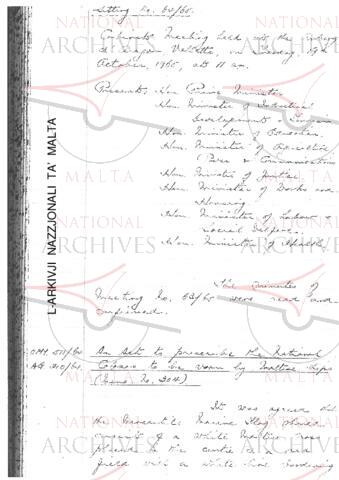 Sitting No. 64/65.
Cabinet Meeting held at the
at Valletta, on Tuesday, 19th
October, 1965, at 11 am.
Present: Hon. Prime Minister
Hon. Minister of Industrial
Development & Tourism
Hon. Minister of Education.
Hon. Minister of Agriculture
Hon. Minister of Justice.
Hon. Minister of Works and
Housing
Hon. Minister of Labour &
Social Welfare.
Hon. Minister of Health.
The minutes of
Meeting No. 63/65 were read and
confirmed.
An Act to prescribe the National
Colours to be worn by Maltese ships
(Memo No. 304)
It was agreed that
the Mercantile Marine Flag should
consist of a white Maltese Cross
placed in the centre of a red
field with a white line bordering
L-ARKIVJI NAZZJONALI TA' MALTA
NATIONAL
ARCHIVES
MALTA
NATIONAL
ARCHIVES
MALTA
NATIONAL
ARCHIVES
MALTA
NATIONAL
ARCHIVES